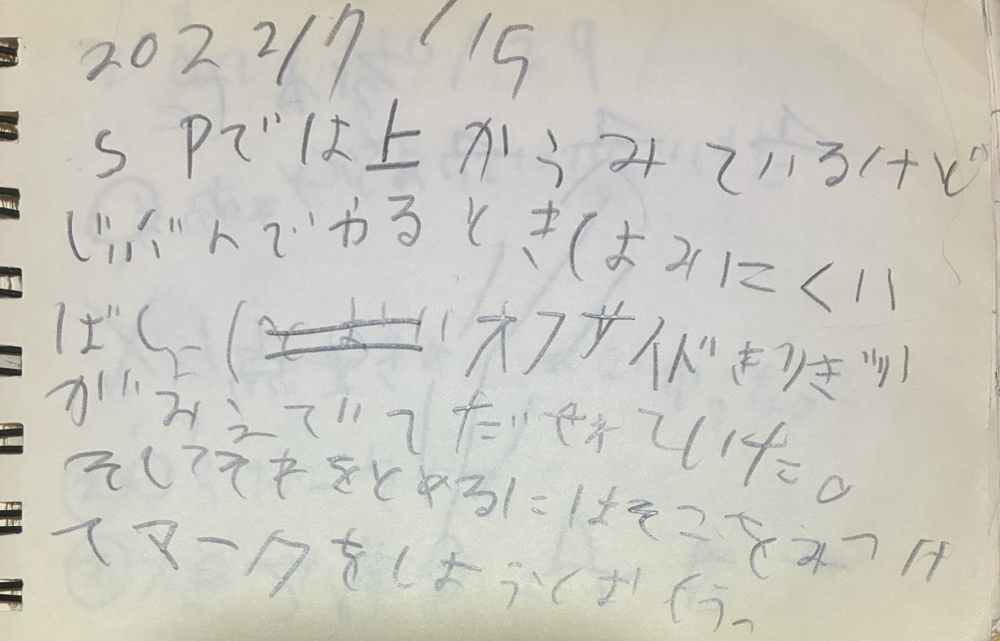 2022/7/15
SPでは上からみているけど
じぶんでやるときはみにくい
ばしょ オフサイドぎりぎり
がみえて だされていた。
そしてそれをとめるにはそこをみつけ
てマークをしよう